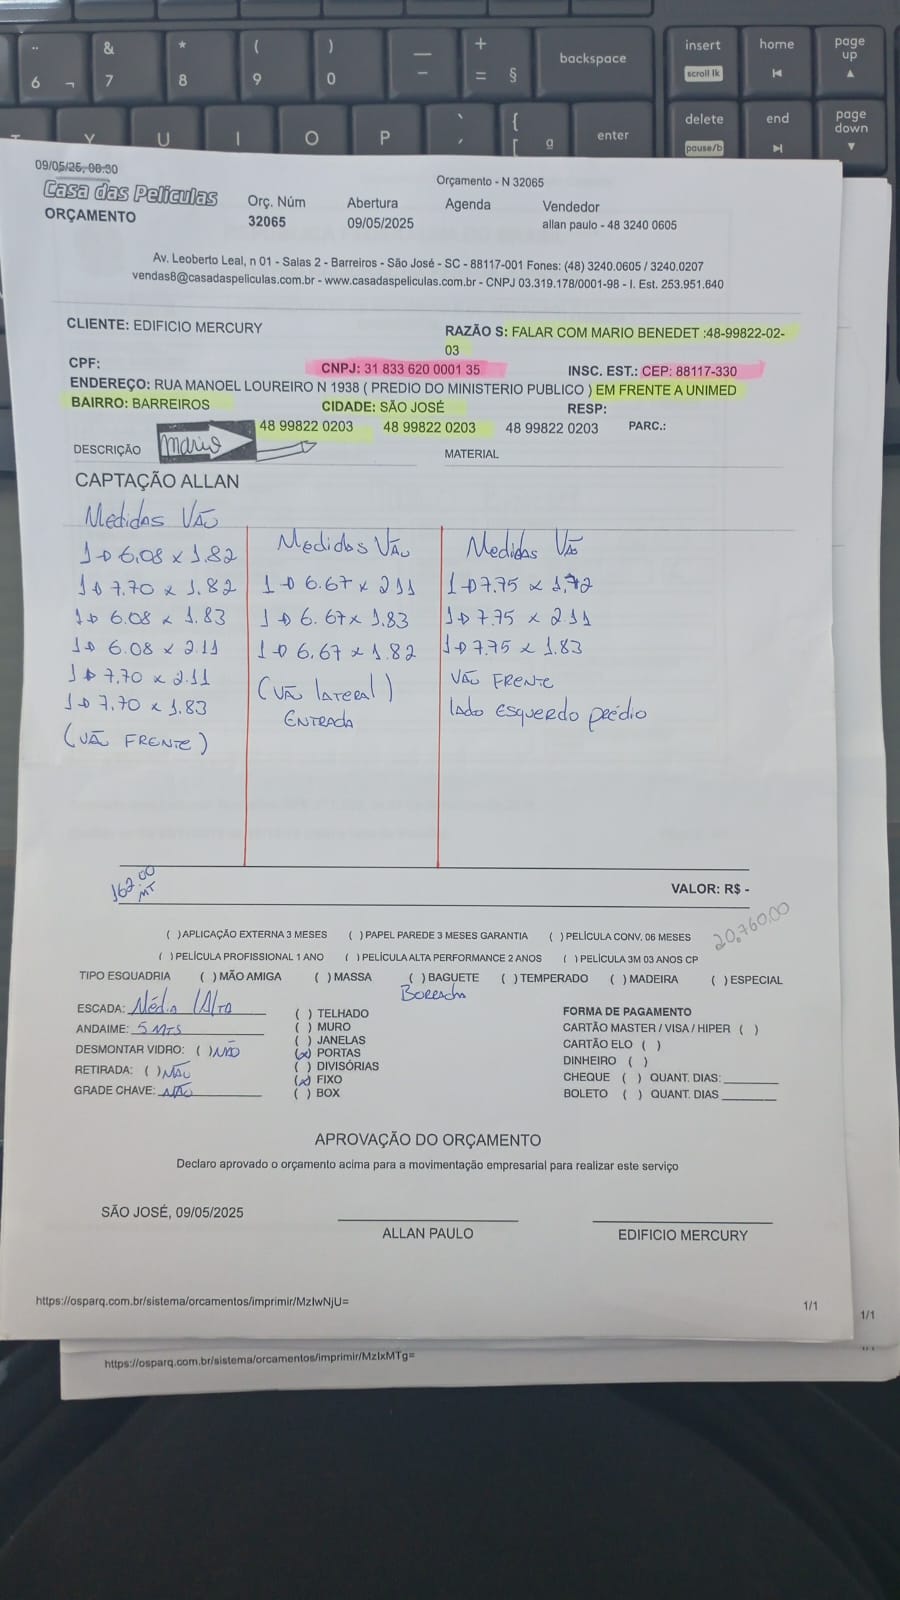 6 ¬ & 7 * 8 ( 9 ) 0 — - + = § backspace insert scroll lk home page up
T Y U I O P ` ´ { [ ª enter delete pause/b end page down
09/05/25, 08:30
Orçamento - N 32065
Casa das Películas
ORÇAMENTO
Orç. Núm Abertura Agenda Vendedor
32065 09/05/2025 allan paulo - 48 3240 0605
Av. Leoberto Leal, n 01 - Salas 2 - Barreiros - São José - SC - 88117-001 Fones: (48) 3240.0605 / 3240.0207
vendas8@casadaspeliculas.com.br - www.casadaspeliculas.com.br - CNPJ 03.319.178/0001-98 - I. Est. 253.951.640
CLIENTE: EDIFICIO MERCURY RAZÃO S: FALAR COM MARIO BENEDET :48-99822-02-
03
CPF: CNPJ: 31 833 620 0001 35 INSC. EST.: CEP: 88117-330
ENDEREÇO: RUA MANOEL LOUREIRO N 1938 ( PREDIO DO MINISTERIO PUBLICO ) EM FRENTE A UNIMED
BAIRRO: BARREIROS CIDADE: SÃO JOSÉ RESP:
48 99822 0203 48 99822 0203 48 99822 0203 PARC.:
DESCRIÇÃO Mario MATERIAL
CAPTAÇÃO ALLAN
Medidas VÃO
1 → 6.08 x 1.82
1 → 7.70 x 1.82
1 → 6.08 x 1.83
1 → 6.08 x 2.11
1 → 7.70 x 2.11
1 → 7.70 x 1.83
(VÃO FRENTE)
Medidas VÃO
1 → 6.67 x 2.11
1 → 6.67 x 1.83
1 → 6.67 x 1.82
(VÃO lateral)
ENTRADA
Medidas VÃO
1 → 7.75 x 1.72
1 → 7.75 x 2.11
1 → 7.75 x 1.83
VÃO FRENTE
lado esquerdo prédio
162.00
MT
VALOR: R$ -
20.760,00
( )APLICAÇÃO EXTERNA 3 MESES ( )PAPEL PAREDE 3 MESES GARANTIA ( )PELÍCULA CONV. 06 MESES
( )PELÍCULA PROFISSIONAL 1 ANO ( )PELÍCULA ALTA PERFORMANCE 2 ANOS ( )PELÍCULA 3M 03 ANOS CP
TIPO ESQUADRIA ( )MÃO AMIGA ( )MASSA ( )BAGUETE ( )TEMPERADO ( )MADEIRA ( )ESPECIAL
Borracha
ESCADA: Média / Alta
ANDAIME: 5 MTS
DESMONTAR VIDRO: ( ) NÃO
RETIRADA: ( ) NÃO
GRADE CHAVE: NÃO
( ) TELHADO
( ) MURO
( ) JANELAS
(x) PORTAS
( ) DIVISÓRIAS
(x) FIXO
( ) BOX
FORMA DE PAGAMENTO
CARTÃO MASTER / VISA / HIPER ( )
CARTÃO ELO ( )
DINHEIRO ( )
CHEQUE ( ) QUANT. DIAS:
BOLETO ( ) QUANT. DIAS
APROVAÇÃO DO ORÇAMENTO
Declaro aprovado o orçamento acima para a movimentação empresarial para realizar este serviço
SÃO JOSÉ, 09/05/2025
ALLAN PAULO EDIFICIO MERCURY
https://osparq.com.br/sistema/orcamentos/imprimir/MzIwNjU=
1/1
1/1
https://osparq.com.br/sistema/orcamentos/imprimir/MzIxMTg=